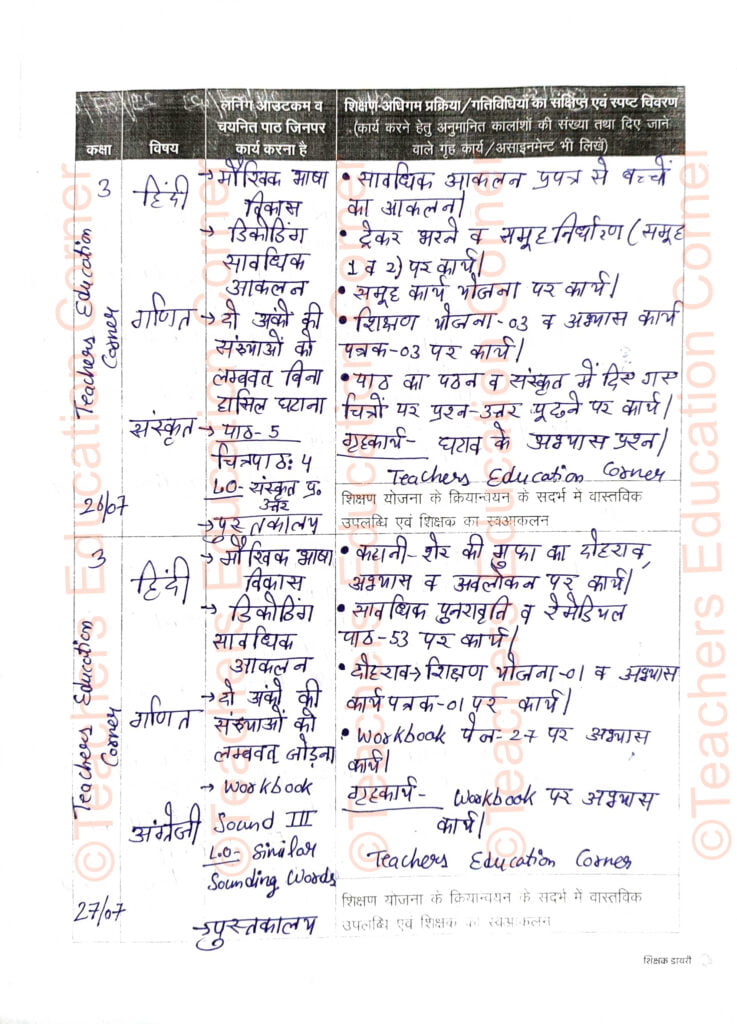 कक्षा
विषय
लर्निंग आउटकम व
चयनित पाठ जिनपर
कार्य करना है
शिक्षण-अधिगम प्रक्रिया/गतिविधियों का संक्षिप्त एवं स्पष्ट विवरण
(कार्य करने हेतु अनुमानित कालांशों की संख्या तथा दिए जाने
वाले गृह कार्य/असाइनमेंट भी लिखें)
3
हिंदी
→ मौखिक भाषा
विकास
→ डिकोडिंग
सावधिक
आकलन
• सावधिक आकलन प्रपत्र से बच्चों
का आकलन।
• ट्रेकर भरने व समूह निर्धारण (समूह
1 व 2) पर कार्य।
• समूह कार्य योजना पर कार्य।
गणित
→ दो अंको की
संख्याओं को
लम्बवत् बिना
हासिल घटाना
• शिक्षण योजना-03 व अभ्यास कार्य
पत्रक-03 पर कार्य।
संस्कृत
→ पाठ-5
चित्रपाठः 4
L.O- संस्कृत प्र.
उत्तर
→ पुस्तकालय
• पाठ का पठन व संस्कृत में दिए गए
चित्रों पर प्रश्न-उत्तर पूछने पर कार्य।
गृहकार्य- घटाव के अभ्यास प्रश्न।
Teachers Education Corner
Teachers Education
Corner
26/07
शिक्षण योजना के क्रियान्वयन के सदर्भ में वास्तविक
उपलब्धि एवं शिक्षक का स्वआकलन
3
हिंदी
→ मौखिक भाषा
विकास
→ डिकोडिंग
सावधिक
आकलन
• कहानी- शेर की गुफा का दोहराव,
अभ्यास व अवलोकन पर कार्य।
• सावधिक पुनरावृति व रेमेडियल
पाठ-53 पर कार्य।
गणित
→ दो अंको की
संख्याओं को
लम्बवत् जोड़ना
→ Workbook
• दोहराव→ शिक्षण योजना-01 व अभ्यास
कार्य पत्रक-01 पर कार्य।
• Workbook पेज-27 पर अभ्यास
कार्य।
गृहकार्य- Workbook पर अभ्यास
कार्य।
अंग्रेजी
Sound III
L.O- Similar
Sounding Words
→ पुस्तकालय
Teachers Education Corner
Teachers Education
Corner
27/07
शिक्षण योजना के क्रियान्वयन के सदर्भ में वास्तविक
उपलब्धि एवं शिक्षक का स्वआकलन
शिक्षक डायरी
©Teachers Education Corner
©Teachers Education Corner
©Teachers Education Corner
©Teachers Education Corner
©Teachers Education Corner